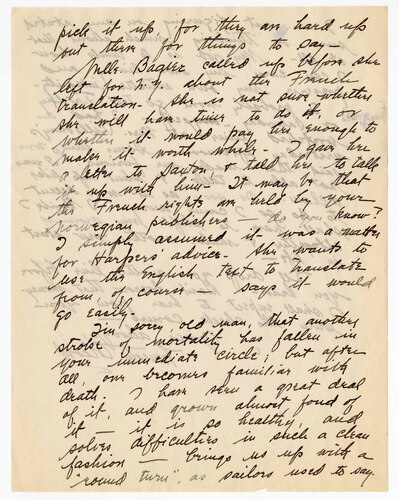 pick it up, for they are hard up
out there for things to say —
Mlle. Bagier called up before she
left for N.Y. about the French
translation — she is not sure whether
she will have time to do it, or
whether it would pay her enough to
make it worth while. I gave her
a letter to Saxton, & told her to talk
it up with him — It may be that
the French rights are held by your
Norwegian publishers — do you know?
I simply assumed it was a matter
for Harpers' advice. She wants to
use the English text to translate
from, of course — says it would
go easily.
I'm sorry, old man, that another
stroke of mortality has fallen in
your immediate circle; but after
all, one becomes familiar with
death. I have seen a great deal
of it, and grown almost fond of
it — it is so healthy, and
solves difficulties in such a clean
fashion — brings us up with a
"round turn", as sailors used to say.